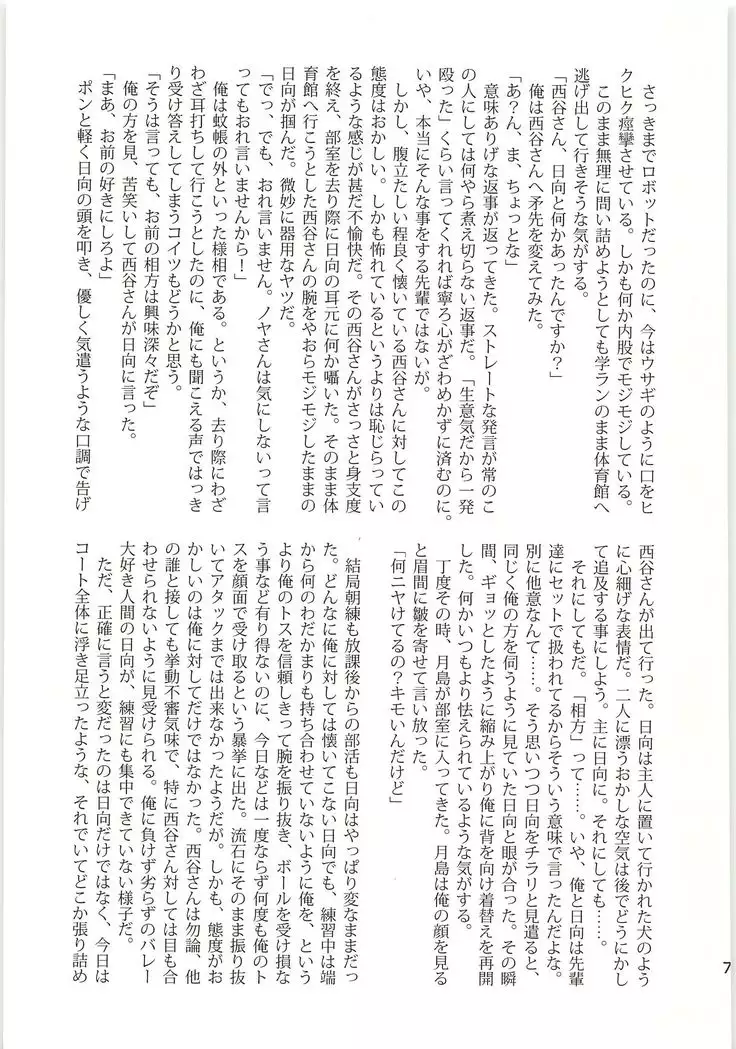 さっきまでロボットだったのに、今はウサギのように口をヒ
クヒク痙攣させている。しかも何か内股でモジモジしている。
　このまま無理に問い詰めようとしても学ランのまま体育館へ
逃げ出して行きそうな気がする。
　俺は西谷さんへ矛先を変えてみた。
「西谷さん、日向と何かあったんですか？」
「あ？ん、ま、ちょっとな」
　意味ありげな返事が返ってきた。ストレートな発言が常のこ
の人にしては何やら煮え切らない返事だ。「生意気だから一発
殴った」くらい言ってくれれば寧ろ心がざわめかずに済むのに。
いや、本当にそんな事をする先輩ではないが。
　しかし、腹立たしい程良く懐いている西谷さんに対してこの
態度はおかしい。しかも怖れているというよりは恥じらってい
るような感じが甚だ不愉快だ。その西谷さんがさっさと身支度
を終え、部室を去り際に日向の耳元に何か囁いた。そのまま体
育館へ行こうとした西谷さんの腕をやおらモジモジしたままの
日向が掴んだ。微妙に器用なヤツだ。
「でっ、でも、おれ言いません。ノヤさんは気にしないって言
ってもおれ言いませんから！」
　俺は蚊帳の外といった様相である。というか、去り際にわざ
わざ耳打ちして行こうとしたのに、俺にも聞こえる声ではっき
り受け答えしてしまうコイツもどうかと思う。
「そうは言っても、お前の相方は興味深々だぞ」
　俺の方を見、苦笑いして西谷さんが日向に言った。
「まあ、お前の好きにしろよ」
　ポンと軽く日向の頭を叩き、優しく気遣うような口調で告げ
西谷さんが出て行った。日向は主人に置いて行かれた犬のよう
に心細げな表情だ。二人に漂うおかしな空気は後でどうにかし
て追及する事にしよう。主に日向に。それにしても……。
　それにしてもだ。「相方」って……。いや、俺と日向は先輩
達にセットで扱われてるからそういう意味で言ったんだよな。
別に他意なんて……。そう思いつつ日向をチラリと見遣ると、
同じく俺の方を伺うように見ていた日向と眼が合った。その瞬
間、ギョッとしたように縮み上がり俺に背を向け着替えを再開
した。何かいつもより怯えられているような気がする。
　丁度その時、月島が部室に入ってきた。月島は俺の顔を見る
と眉間に皺を寄せて言い放った。
「何ニヤけてるの？キモいんだけど」
　結局朝練も放課後からの部活も日向はやっぱり変なままだっ
た。どんなに俺に対しては懐いてこない日向でも、練習中は端
から何のわだかまりも持ち合わせていないように俺を、という
より俺のトスを信頼しきって腕を振り抜き、ボールを受け損な
う事など有り得ないのに、今日などは一度ならず何度も俺のト
スを顔面で受け取るという暴挙に出た。流石にそのまま振り抜
いてアタックまでは出来なかったようだが。しかも、態度がお
かしいのは俺に対してだけではなかった。西谷さんは勿論、他
の誰と接しても挙動不審気味で、特に西谷さん対しては目も合
わせられないように見受けられる。俺に負けず劣らずのバレー
大好き人間の日向が、練習にも集中できていない様子だ。
　ただ、正確に言うと変だったのは日向だけではなく、今日は
コート全体に浮き足立ったような、それでいてどこか張り詰め
7